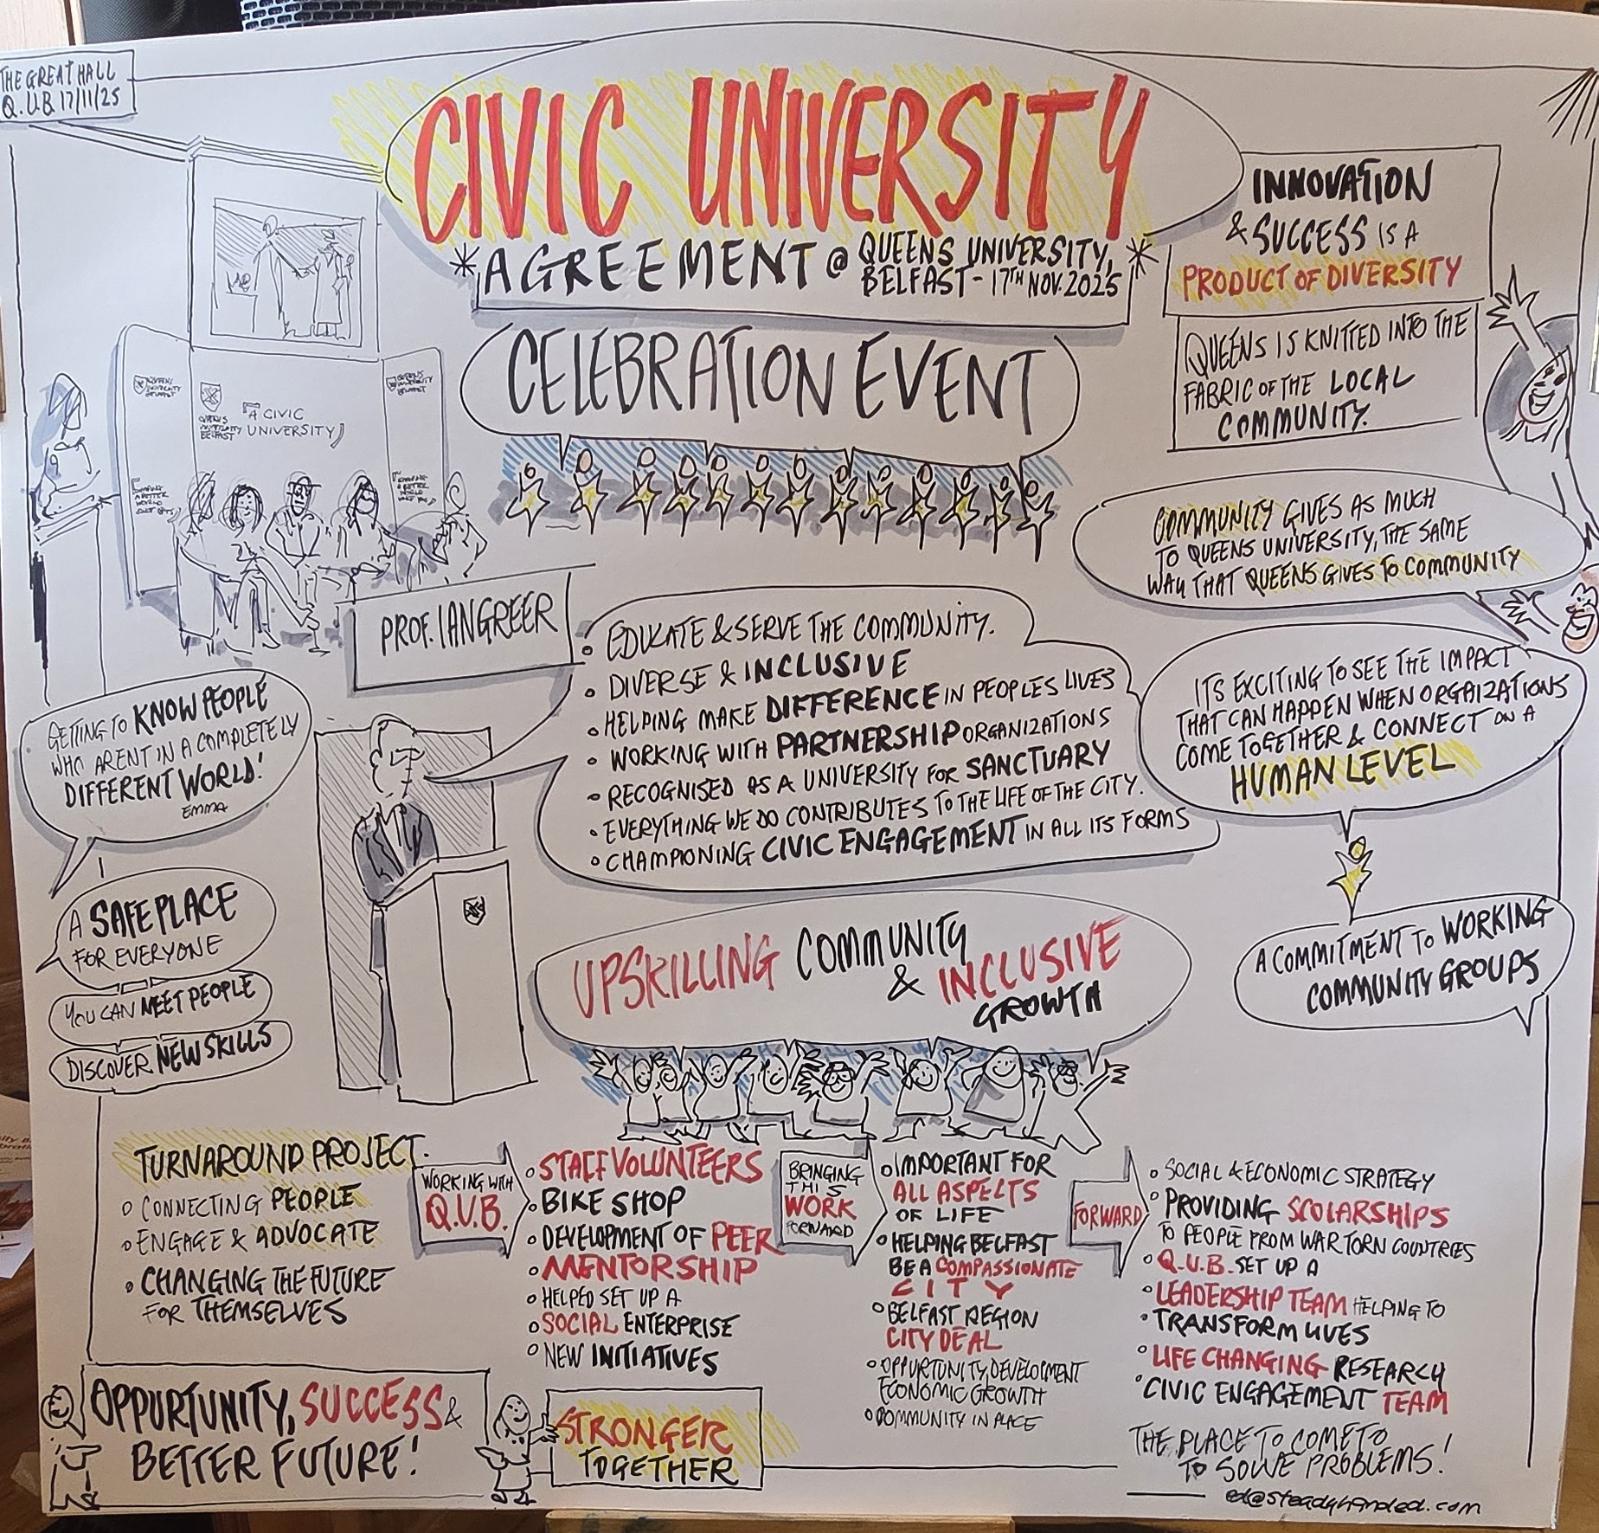 THE GREAT HALL
Q.U.B 17/11/25
CIVIC UNIVERSITY
*AGREEMENT @ QUEENS UNIVERSITY, *
BELFAST - 17TH NOV. 2025
CELEBRATION EVENT
INNOVATION
& SUCCESS IS A
PRODUCT OF DIVERSITY
QUEENS IS KNITTED INTO THE
FABRIC OF THE LOCAL
COMMUNITY.
QUEENS
UNIVERSITY
BELFAST
QUEENS
UNIVERSITY
BELFAST
A CIVIC
UNIVERSITY
QUEENS
UNIVERSITY
BELFAST
COMMUNITY GIVES AS MUCH
TO QUEENS UNIVERSITY, THE SAME
WAY THAT QUEENS GIVES TO COMMUNITY
PROF. IAN GREER
• EDUCATE & SERVE THE COMMUNITY.
• DIVERSE & INCLUSIVE
• HELPING MAKE DIFFERENCE IN PEOPLES LIVES
• WORKING WITH PARTNERSHIP ORGANIZATIONS
• RECOGNISED AS A UNIVERSITY FOR SANCTUARY
• EVERYTHING WE DO CONTRIBUTES TO THE LIFE OF THE CITY.
• CHAMPIONING CIVIC ENGAGEMENT IN ALL ITS FORMS
ITS EXCITING TO SEE THE IMPACT
THAT CAN HAPPEN WHEN ORGAIZATIONS
COME TOGETHER & CONNECT ON A
HUMAN LEVEL
GETTING TO KNOW PEOPLE
WHO ARENT IN A COMPLETELY
DIFFERENT WORLD!
EMMA
A SAFE PLACE
FOR EVERYONE
YOU CAN MEET PEOPLE
DISCOVER NEW SKILLS
UPSKILLING COMMUNITY
& INCLUSIVE
GROWTH
A COMMITMENT TO WORKING
COMMUNITY GROUPS
TURNAROUND PROJECT.
• CONNECTING PEOPLE
• ENGAGE & ADVOCATE
• CHANGING THE FUTURE
FOR THEMSELVES
WORKING WITH
Q.U.B.
• STAFF VOLUNTEERS
• BIKE SHOP
• DEVELOPMENT OF PEER
• MENTORSHIP
• HELPED SET UP A
• SOCIAL ENTERPRISE
• NEW INITIATIVES
BRINGING
THIS
WORK
FORWARD
• IMPORTANT FOR
ALL ASPECTS
OF LIFE
• HELPING BELFAST
BE A COMPASSIONATE
CITY
• BELFAST REGION
CITY DEAL
• OPPURTUNITY, DEVELOPMENT
ECONOMIC GROWTH
• COMMUNITY IN PLACE
FORWARD
• SOCIAL & ECONOMIC STRATEGY
• PROVIDING SCOLARSHIPS
TO PEOPLE FROM WAR TORN COUNTRIES
• Q.U.B. SET UP A
• LEADERSHIP TEAM HELPING TO
• TRANSFORM LIVES
• LIFE CHANGING RESEARCH
• CIVIC ENGAGEMENT TEAM
THE PLACE TO COME TO
TO SOLVE PROBLEMS!
OPPURTUNITY, SUCCESS &
BETTER FUTURE!
STRONGER
TOGETHER
ed@steadyhanded.com